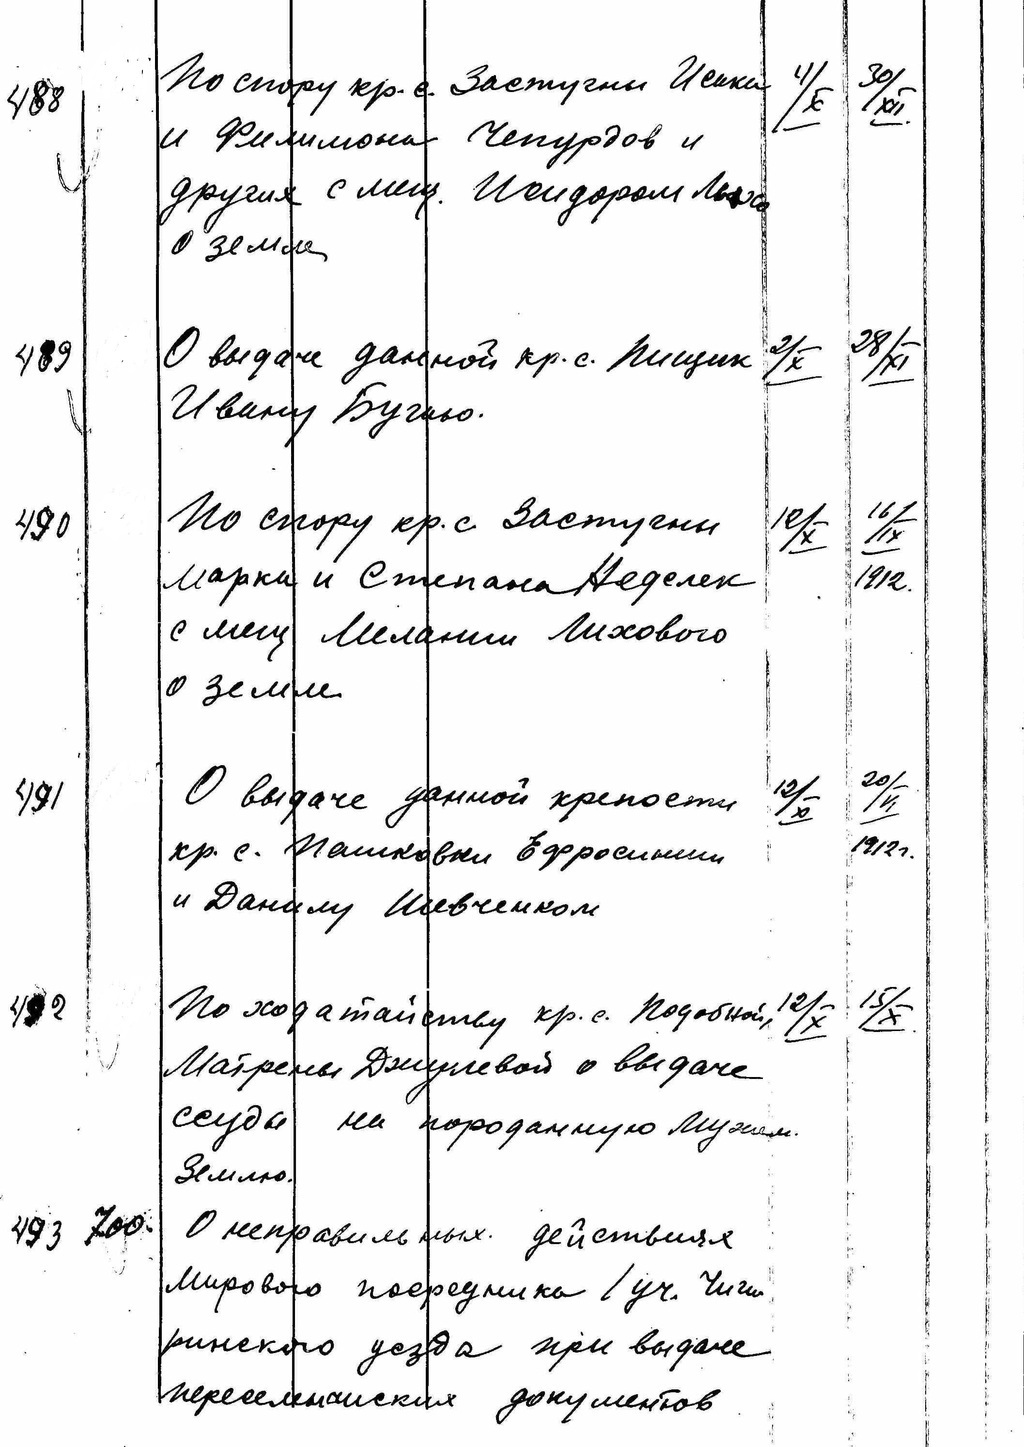 488 По спору кр. с. Застугны Исака 4/X 30/XII.
и Филимона Чепурдов и
других с мещ. Исидором
о земле
489 О выдаче данной кр. с. Пищик 2/X 28/XI
Ивану Бугаю.
490 По спору кр. с. Застугны 12/X 16/IX
Марка и Степана Неделек 1912.
с мещ Мелании Лихового
о земле
491 О выдаче данной крепости 12/X 20/VI
кр. с. Пашковки Ефросинии 1912 г.
и Данилу Шевченком
492 По ходатайству кр. с. Подобной, 12/X 15/X
Матрены Джулевой о выдаче
ссуды на породанную Мужем.
Землю.
493 700. О неправильных. действиях
мирового посредника 1 уч. Чиги
ринского уезда при выдаче
переселенческих документов